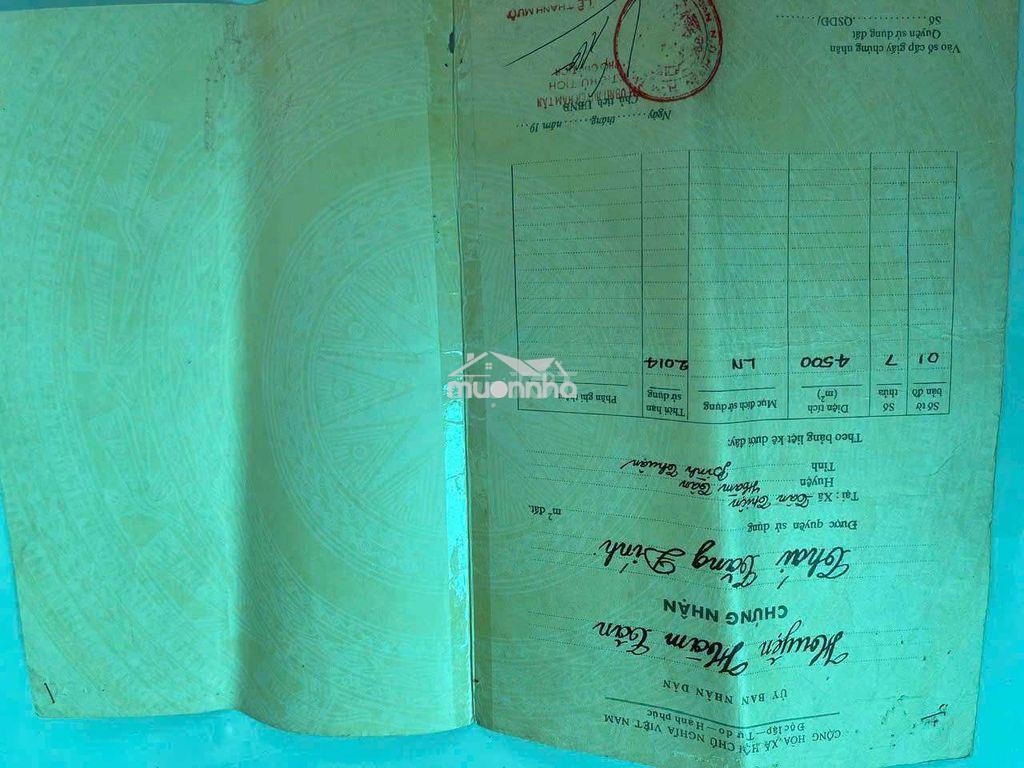 CỘNG HÒA XÃ HỘI CHỦ NGHĨA VIỆT NAM
Độc lập—Tự do—Hạnh phúc
ỦY BAN NHÂN DÂN
Huyện Hàm Tân
CHỨNG NHẬN
Thái Tăng Dính
Được quyền sử dụng m² đất.
Tại : Xã Tân Thiện
Huyện Hàm Tân
Tỉnh Bình Thuận
Theo bảng liệt kê dưới đây:
Số tờ bản đồ Số thửa Diện tích (m²) Mục đích sử dụng Thời hạn sử dụng Phần ghi thêm
01 7 4500 LN 2014
Ngày tháng năm 19
Chủ tịch UBND
Vào sổ cấp giấy chứng nhận
Quyền sử dụng đất
Số QSDĐ/
LÊ THANH MƯỜ
muonnha